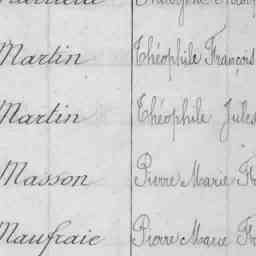 Martin Théophile François
Martin Théophile Jules
Masson Pierre Marie
Maufraie Pierre Marie